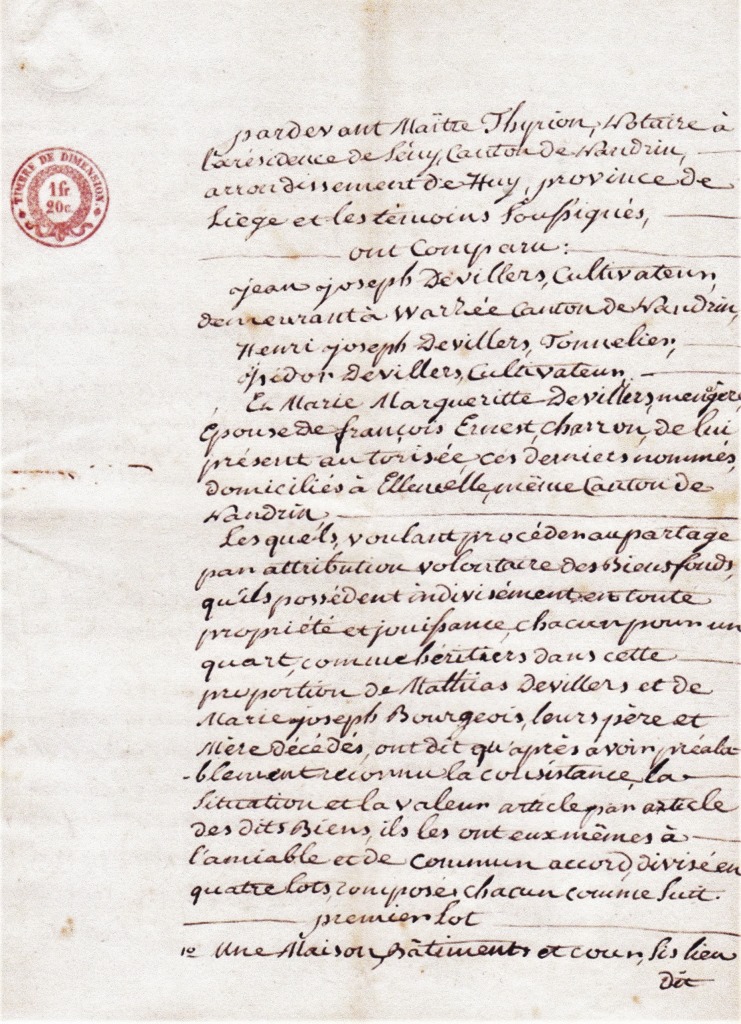 TIMBRE DE DIMENSION
1 fr
20 c.
pardevant Maître Thyrion, Notaire à
la résidence de Sény, Canton de Nandrin,
arrondissement de Huy, province de
Liège et les témoins soussignés,
ont Comparu :
jean joseph Devillers, Cultivateur,
demeurant à Warzée Canton de Nandrin,
Henri joseph Devillers, Tonnelier,
isidor Devillers, Cultivateur,
Et Marie Margueritte Devillers, menagère,
Epouse de françois Ernest, charron, de lui
présent autorisée, ces derniers nommés,
domiciliés à Ellemelle, même Canton de
Nandrin,
Lesquels, voulant procéder au partage
par attribution volontaire des Biens fonds,
qu'ils possèdent indivisément en toute
propriété et jouissance, chacun pour un
quart, comme héritiers dans cette
proportion de Mathias Devillers et de
Marie joseph Bourgeois, leurs père et
Mère décédés, ont dit qu'après avoir préala
-blement reconnu la consistance, la
situation et la valeur article par article
des dits Biens, ils les ont eux mêmes à
l'amiable et de commun accord, divisé en
quatre lots, composés chacun comme suit.
premier Lot
1° Une Maison, Bâtiments et cour, sis lieu
dit